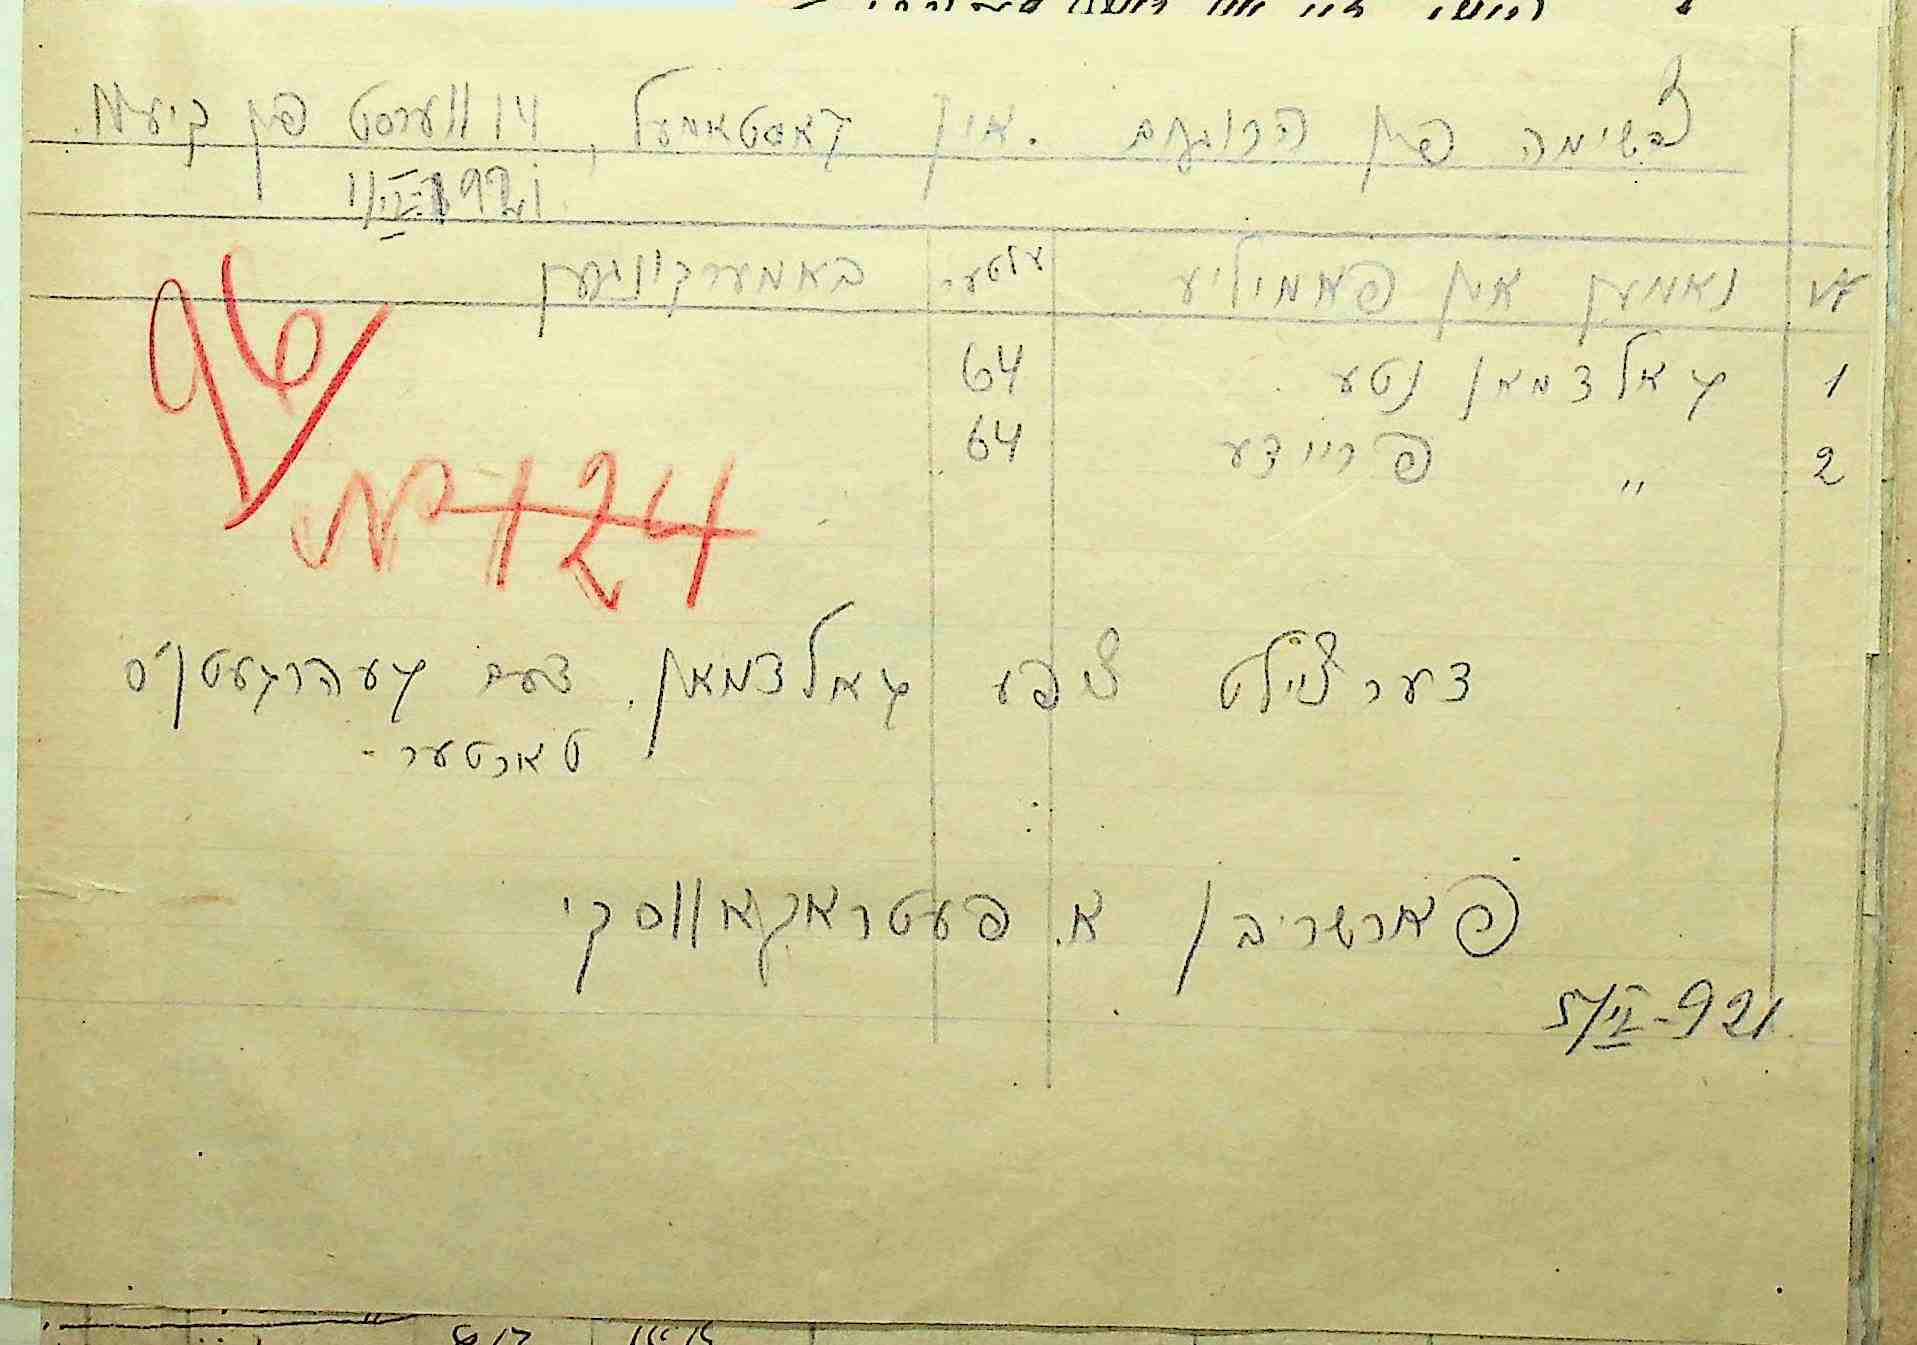 רשימה פון הרוגים אין קאסטאמעל, 14 ווערסט פון קיעוו.
11/II-1921
№ נאמען און פאמיליע עלטער באמערקונגען
1 גאלדמאן נטע 64
2 " פריידע 64
96
№124
דערציילט ציפע גאלדמאן. דעם געהרגעטן'ס
טאכטער-
פארשריבן א. פעטראקאווסקי
5/II-921